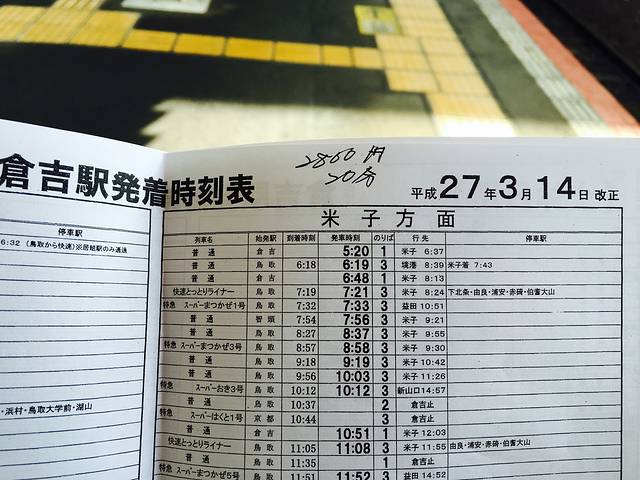 2860円
20分
倉吉駅発着時刻表
平成27年3月14日 改正
停車駅
6:32 (鳥取から快速)※居組駅のみ通過
・浜村・鳥取大学前・湖山
米子方面
列車名 始発駅 到着時刻 発車時刻 のりば 行先 停車駅
普通 倉吉 5:20 1 米子 6:37
普通 鳥取 6:18 6:19 3 境港 8:39 米子着 7:43
普通 倉吉 6:48 1 米子 8:13
快速とっとりライナー 鳥取 7:19 7:21 3 米子 8:24 下北条・由良・浦安・赤碕・伯耆大山
特急 スーパーまつかぜ1号 鳥取 7:32 7:33 3 益田 10:51
普通 智頭 7:54 7:56 3 米子 9:21
普通 鳥取 8:27 8:37 3 米子 9:55
特急 スーパーまつかぜ3号 鳥取 8:57 8:58 3 米子 9:30
普通 鳥取 9:18 9:19 3 米子 10:42
普通 鳥取 9:56 10:03 3 米子 11:26
特急 スーパーおき3号 鳥取 10:12 10:12 3 新山口 14:57
普通 鳥取 10:37 2 倉吉止
特急 スーパーはくと1号 京都 10:44 3 倉吉止
普通 倉吉 10:51 1 米子 12:03
快速とっとりライナー 鳥取 11:05 11:08 3 米子 11:55 由良・浦安・赤碕・伯耆大山
普通 鳥取 11:35 1 倉吉止
特急 スーパーまつかぜ5号 鳥取 11:51 11:52 3 益田 14:52